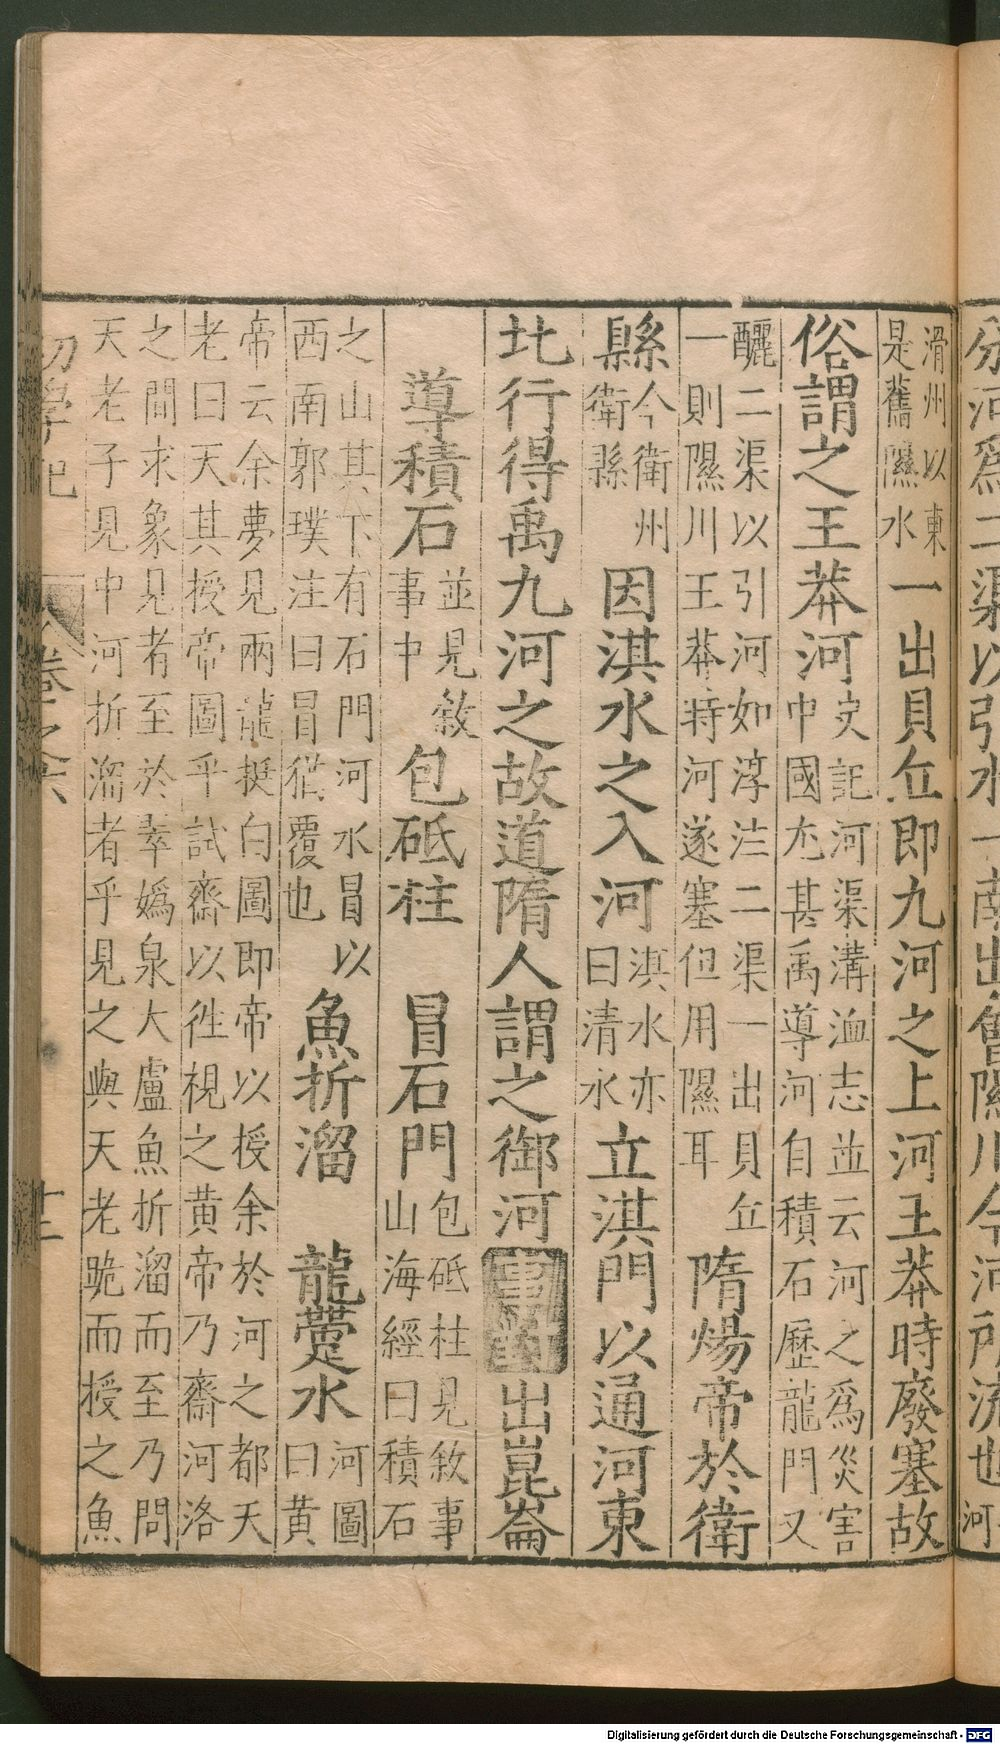 分河為二渠以引水一南出會㶟川今河所流也河
滑州以東
是舊㶟水
一出貝丘即九河之上河王莽時廢塞故
俗謂之王莽河
史記河渠溝洫志並云河之為災害
中國尤甚禹導河自積石歷龍門又
釃二渠以引河如淳注二渠一出貝丘
一則㶟川王莽時河遂塞但用㶟耳
隋煬帝於衛
縣
今衛州
衛縣
因淇水之入河
淇水亦
曰清水
立淇門以通河東
北行得禹九河之故道隋人謂之御河
事對
出崑崙
導積石
並見敘
事中
包砥柱
冒石門
包砥柱見敘事
山海經曰積石
之山其下有石門河水冒以
西南郭璞注曰冒猶覆也
魚折溜
龍薆水
河圖
曰黃
帝云余夢見兩龍挺白圖即帝以授余於河之都天
老曰天其授帝圖乎試齋以徃視之黃帝乃齋河洛
之間求象見者至於翠媯泉大盧魚折溜而至乃問
天老子見中河折溜者乎見之與天老跪而授之魚
初學記
卷之六
十二
Digitalisierung gefördert durch die Deutsche Forschungsgemeinschaft - DFG